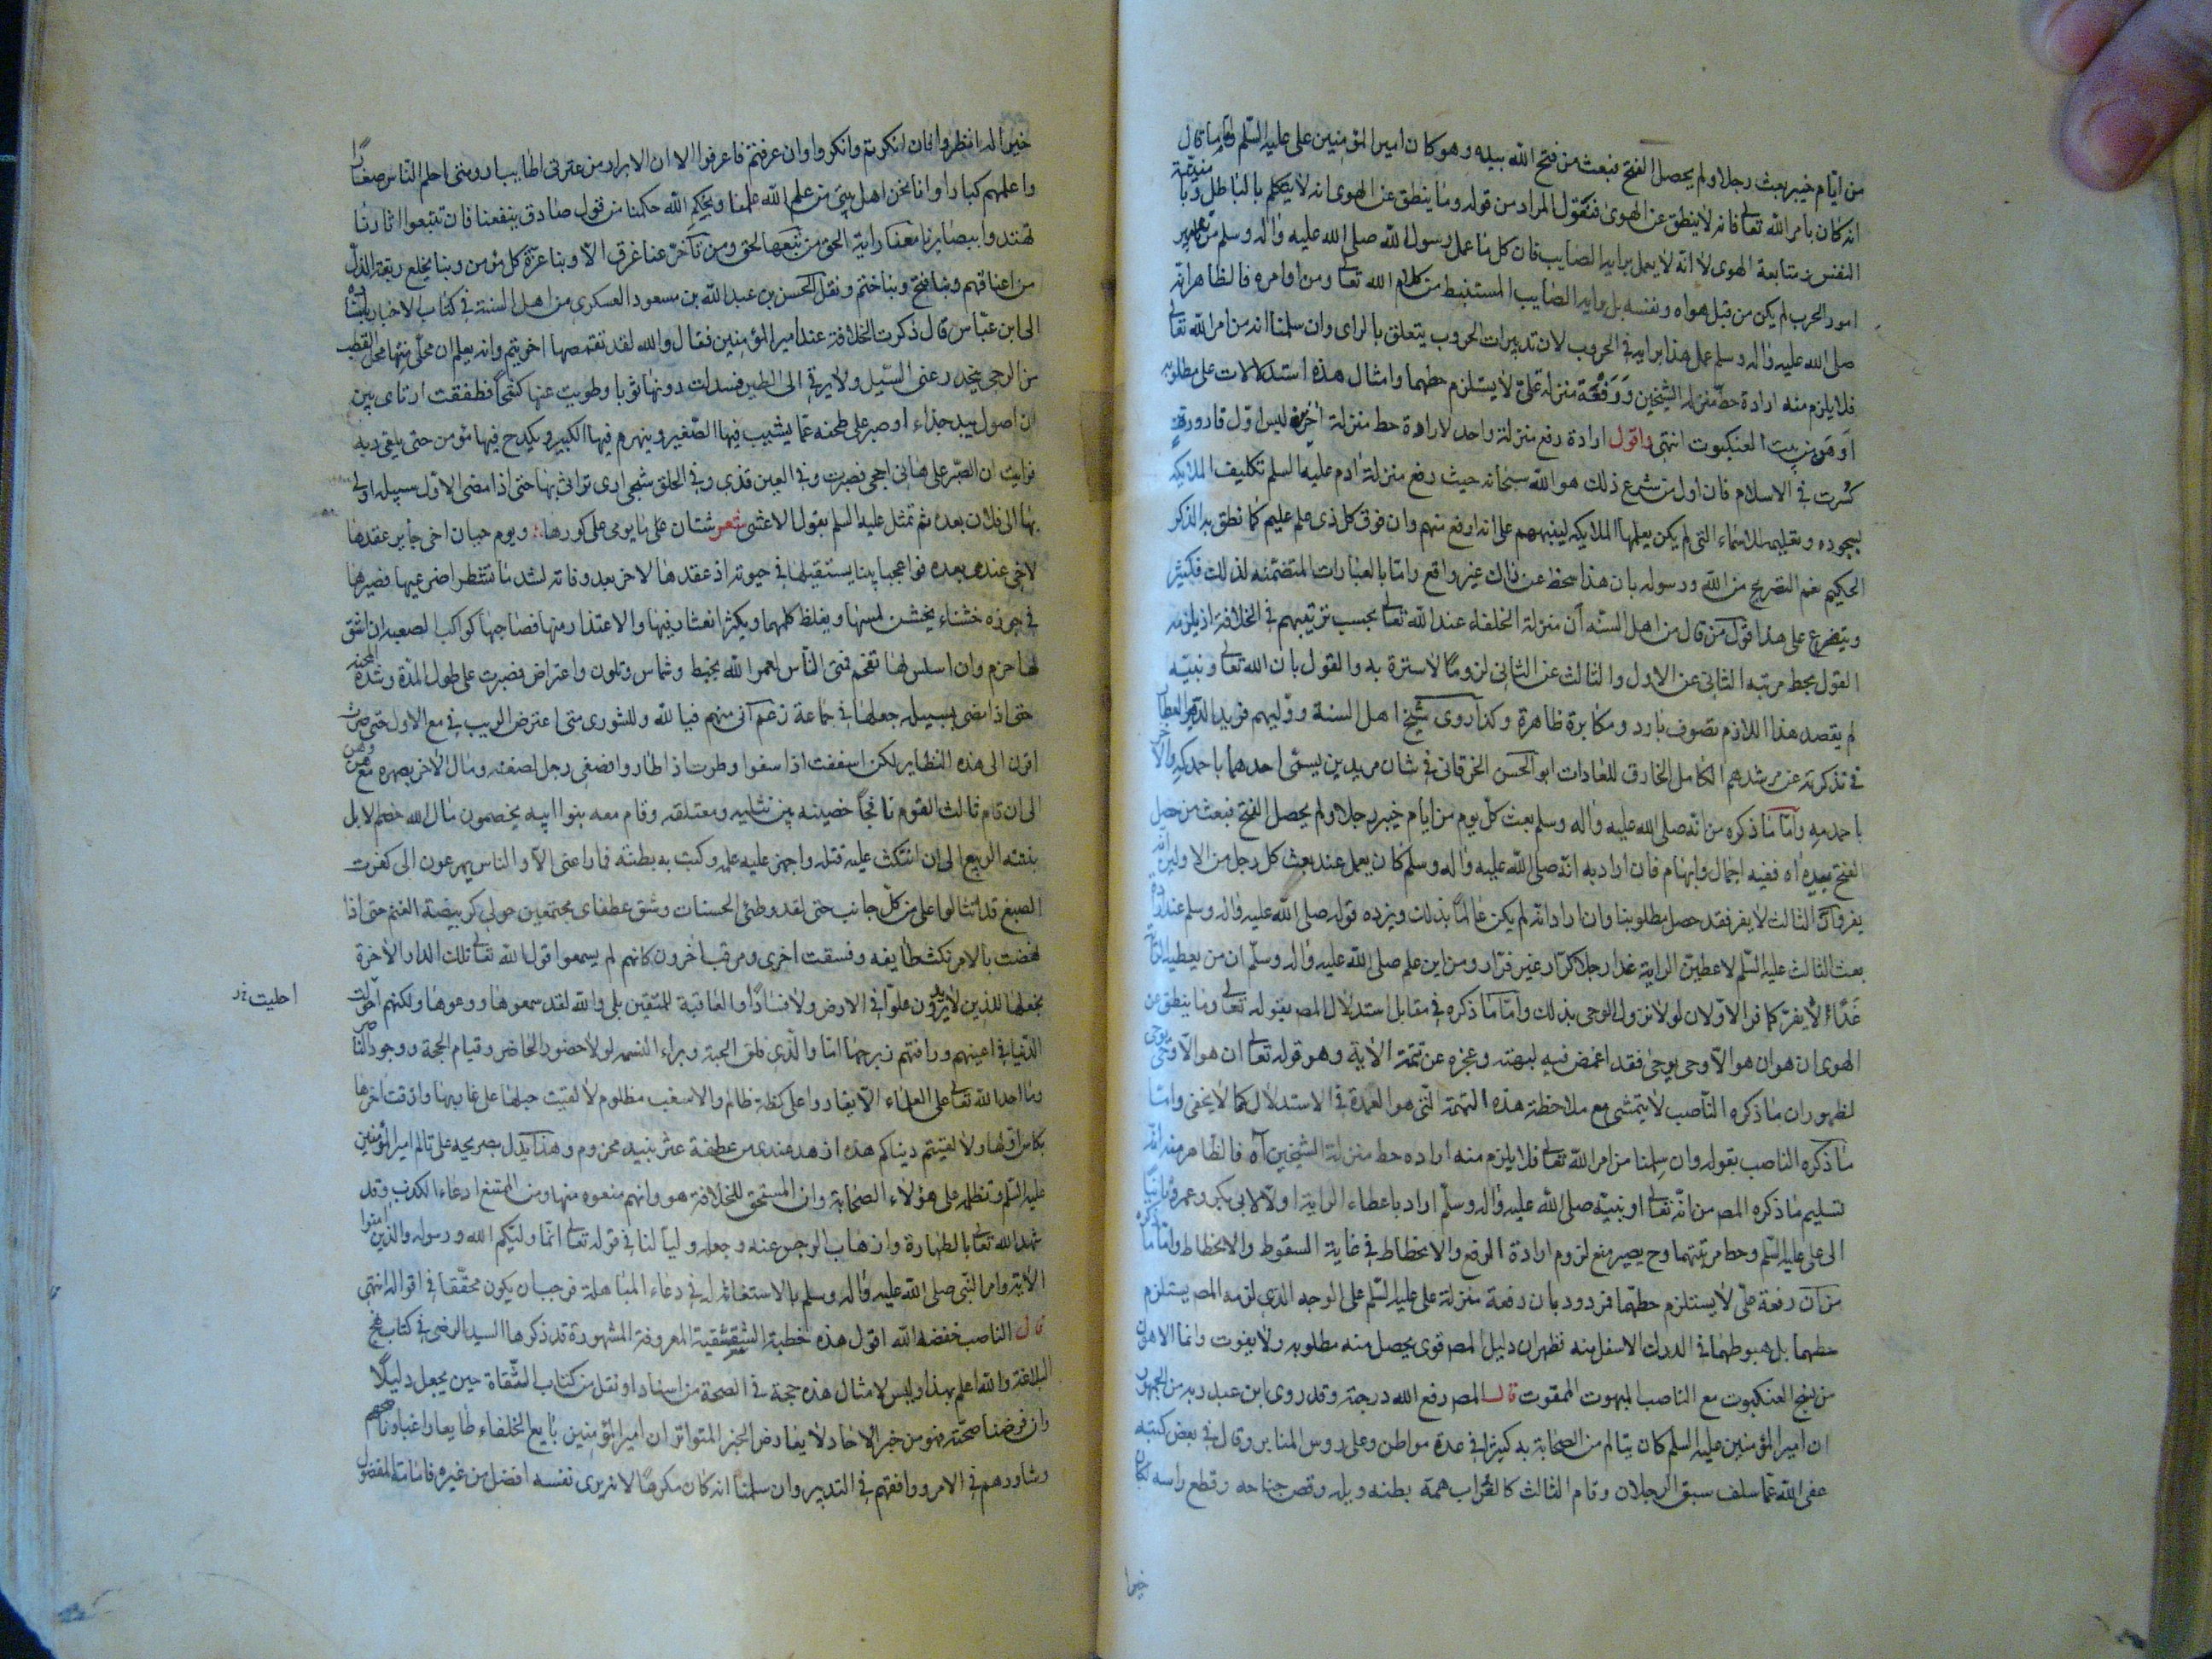 من ايّام خيبر بعث رجلا ولم يحصل الفتح فبعث من فتح الله بيده وهو كان امير المؤمنين على عليه السّلم وامّا ما قال
انه كان بامر الله تعالى فانه لا ينطق عن الهوى فنقول المراد من قوله وما ينطق عن الهوى انه لا يتكلم بالباطل
النفس ومتابعة الهوى لا انّه لا يعمل برايه الصّايب فان كل ما عمل رسول الله صلى الله عليه واله وسلم من
امور الحرب لم يكن من قبل هواه ونفسه بل برايه الصّايب المستنبط من كلام الله تعالى ومن اوامره فالظاهر انّه
صلى الله عليه واله وسلم عمل هذا برايه في الحروب لان تدبيرات الحروب يتعلق بالراى وان سلمنا انه من امر الله تعالى
فلا يلزم منه ارادة حطّ منزلة الشيخين ورفعة منزلة علىّ لا يستلزم حطهما وامثال هذه استدلالات على مطلوبه
اوهن من بيت العنكبوت انتهى واقول ارادة رفع منزلة واحد لارادة حط منزلة اخر ليس اوّل قارورة
كسرت في الاسلام فان اول من شرع ذلك هو الله سبحانه حيث رفع منزلة ادم عليه السلم تكليف الملايكة
بسجوده وتعليمه للاسماء التى لم يكن يعلمها الملايكه لينبههم على انه اوفع منهم وان فوق كل ذى علم عليم كما نطق به الذكر
الحكيم نعم التصريح من الله ورسوله بان هذا حط عن ذاك غير واقع وامّا بالعبارات المتضمّنه لذلك فكثير
ويتفرع على هذا قول من قال من اهل السنّه ان منزلة الخلفاء عند الله تعالى بحسب ترتيبهم في الخلافة اذ يلزمه
القول بحط مرتبه الثانى عن الاول والثالث عن الثانى لزوما لا سترة به والقول بان الله تعالى ونبيّه
لم يقصد هذا اللازم تصوف بارد ومكابرة ظاهرة وكذا روى شيخ اهل السنة ووليهم فريد الدين العطار
في تذكرته عن مرشدهم الكامل الخارق للعادات ابو الحسن الخرقانى في شان مريدين يسمّى احدهما باحمد كه والاخر
باحمد مه وامّا ما ذكره من انّه صلى الله عليه واله وسلم بعث كلّ يوم من ايام خيبر رجلا ولم يحصل الفتح فبعث من حصل
الفتح بيده اه ففيه اجمال وابهام فان اراد به انّه صلى الله عليه واله وسلم كان يعمل عند بعث كل رجل من الاولين انه
يفر وان الثالث لا يفر فقد حصل مطلوبنا وان اراد انّه لم يكن عالما بذلك ويرده قوله صلى الله عليه واله وسلم عند ارادة
بعث الثالث عليه السّلم لاعطينّ الراية غدا رجلا كرّار غير فرّار ومن اين علم صلى الله عليه واله وسلّم ان من يعطيه الراية
غدًا لا يفرّ كما فر الاوّلان لولا نزول الوحى بذلك وامّا ما ذكره في مقابل استدلال المص بقوله تعالى وما ينطق عن
الهوى ان هو الّا وحى يوحى فقد اغمض فيه لبهته وعجزه عن تتمّة الاية وهو قوله تعالى ان هو الّا وحى يوحى
لظهور ان ما ذكره النّاصب لا يتمشى مع ملاحظة هذه التتمة الّتى هو العمدة في الاستدلال كما لا يخفى وامّا
ما ذكره الناصب بقوله وان سلمنا من امر الله تعالى فلا يلزم منه اراده حط منزلة الشيخين اه فالظاهر منه انّه
تسليم ما ذكره المص من انّه تعالى او نبيّه صلى الله عليه واله وسلّم اراد باعطاء الراية اولا لابى بكر وعمر وثانيا
الى على عليه السّلم وحط مرتبتهما وح يصير منع لزوم ارادة الرفع والانحطاط في غاية السقوط والانحطاط وامّا ما ذكره
من ان رفعة علىّ لا يستلزم حطهما فمردود بان رفعة منزلة على عليه السّلم على الوجه الذى لزمه المص يستلزم
حطهما بل هبوطهما في الدرك الاسفل منه فظهر ان دليل المص قوى يحصل منه مطلوبه ولا يفوت وانما الاهون
من نسج العنكبوت مع الناصب المبهوت الممقوت قال المص رفع الله درجته وقد روى ابن عبد ربه من الجمهور
ان امير المؤمنين عليه السلم كان يتالم من الصّحابة به كثيرا في عدة مواطن وعلى روس المنابر وقال في بعض كتبه
عفى الله عمّا سلف سبق الرجلان وقام الثالث كالغراب همّة بطنه ويله وقص جناحه وقطع راسه لكان
خيرا
خيرا له انظروا فان انكرتم وانكروا وان عرفتم فاعرفوا الا ان الابرار من عترتى اطايب ارومتى احلم النّاس صغارًا
واعلمهم كبارا وانا نحن اهل بيتى من علم الله علمنا وبحكم الله حكمنا من قول صادق ينفعنا فان تتبعوا اثارنا
تهتدوا ببصايرنا معنا راية الحق من تبعها لحق ومن تاخّر عنا غرق الا وبنا عزّة كل مؤمن وبنا يخلع ربقة الذل
من اعناقهم وبنا فتح وبنا ختم ونقل الحسن بن عبد الله بن مسعود العسكرى من اهل السنة في كتاب الاخبار باسناده
الى ابن عبّاس قال ذكرت الخلافة عند امير المؤمنين فقال والله لقد تقمصها اخو يتم وانه يعلم ان محلّى منها محل القطب
من الرحى ينحدر عنى السّيل ولا يرقى الى الطير فسدلت دونها ثوبا وطويت عنها كشحًا فطفقت ارتاى بين
ان اصول بيد جذاء او صبر على طخيه عميا يشيب فيها الصّغير ويهرم فيها الكبير ويكدح فيها مؤمن حتى يلقى ربه
فرايت ان الصّبر على هاتى احجى فصبرت وفي العين قذى وفي الحلق شجى ارى تراثى نهبا حتى اذا مضى الاوّل سبيله ادلى
بها الى فلان بعده ثم تمثل عليه السلم بقول الاعشى شعر شتان على ما يومى على كورها ويوم حيان اخى جابر عقدها
لاخى عندى بعده فواعجبا بينا يستقيلها في حيوته اذ عقدها لاخر بعد وفاته لشد ما تشطر اضرعيها فصيرها
في حوزه خشناء يخشن لمسها ويغلظ كلمها ويكثر العثار فيها والاعتذار منها فصاحبها كراكب الصعبه ان اشنق
لها خرم وان اسلس لها تقحم فمنى النّاس لعمر الله بخبط وشماس وتلون واعتراض فصبرت على طول المدّة وشدّة المحنه
حتى اذا مضى بسبيله جعلها في جماعة زعم انى منهم فيالله وللشورى متى اعترض الريب في مع الاول حتى صرت
اقرن الى هذه النظاير لكن اسففت اذا سفوا وطرت اذ اطاروا فصغى رجل لصغنه ومال الاخر لصهره مع هن وهن
الى ان قام ثالث القوم نافجًا حضينه بين نثيله ومعتلفه وقام معه بنوا ابيه يخضمون مال الله خضم الابل
بنبته الربيع الى ان انتكث عليه فتله واجهز عليه عمله وكبت به بطنته فما راعنى الّا والناس يهرعون الى كعرف
الضبغ قد انثالوا على من كلّ جانب حتى لقد وطئ الحسنان وشق عطفاى مجتمعين حولى كربيضة الغنم حتى اذا
نهضت بالامر نكث طايفه وفسقت اخرى ومرق اخرون كانهم لم يسمعوا قول الله تعالى تلك الدار الاخرة
نجعلها للذين لا يريدون علوّا في الارض ولا فسادًا والعاقبة للمتقين بلى والله لقد سمعوها ووعوها ولكنهم احولت
احليت خ ر
الدّنيا في اعينهم وراقتهم زبرجها امّا والّذى فلق الحبة وبراء النسمه لولا حضور الحاضر وقيام الحجة ووجود الناصر
وما اخذ الله تعالى على العلماء الّا يقاروا على كظة ظالم ولا سغب مظلوم لالقيت حبلها على غاربها واسقت اخرها
بكاس اولها ولالفيتم دنياكم هذه ازهد عندى من عطفة عنز بنيه محزوم وهذا يدل بصريحه على تالم امير المؤمنين
عليه السّلم وتظلمه على هؤلاء الصّحابة وان المستحق للخلافة هو وانهم منعوه منها ومن الممتنع ادعاء الكذب وقد
شهد الله تعالى بالطهارة واذهاب الرجس عنه وجعله وليا لنا في قوله تعالى انما وليكم الله ورسوله والذين امنوا
الاية وامر النّبى صلى الله عليه واله وسلم بالاستغاثة له في دعاء المباهلة فوجب ان يكون محقّقا في اقواله انتهى
قال الناصب خفضه الله اقول هذه خطبة الشقشقية المعروفة المشهورة قد ذكرها السيد الرضى في كتاب نهج
البلاغة والله اعلم بهذا وليس لامثال هذه حجة في الصحة من اسناد او نقل من كتاب الثّقاة حين يجعل دليلًا
وان فرضنا صحّته فهو من خبر الاحاد لا يعارض الخبر المتواتر ان امير المؤمنين بايع الخلفاء طايعا راغبا وناصحهم
وشاورهم في الامر ووافقهم في التدبير وان سلمنا انه كان مكرهًا لانه يرى نفسه افضل من غيره فامامة المفضول